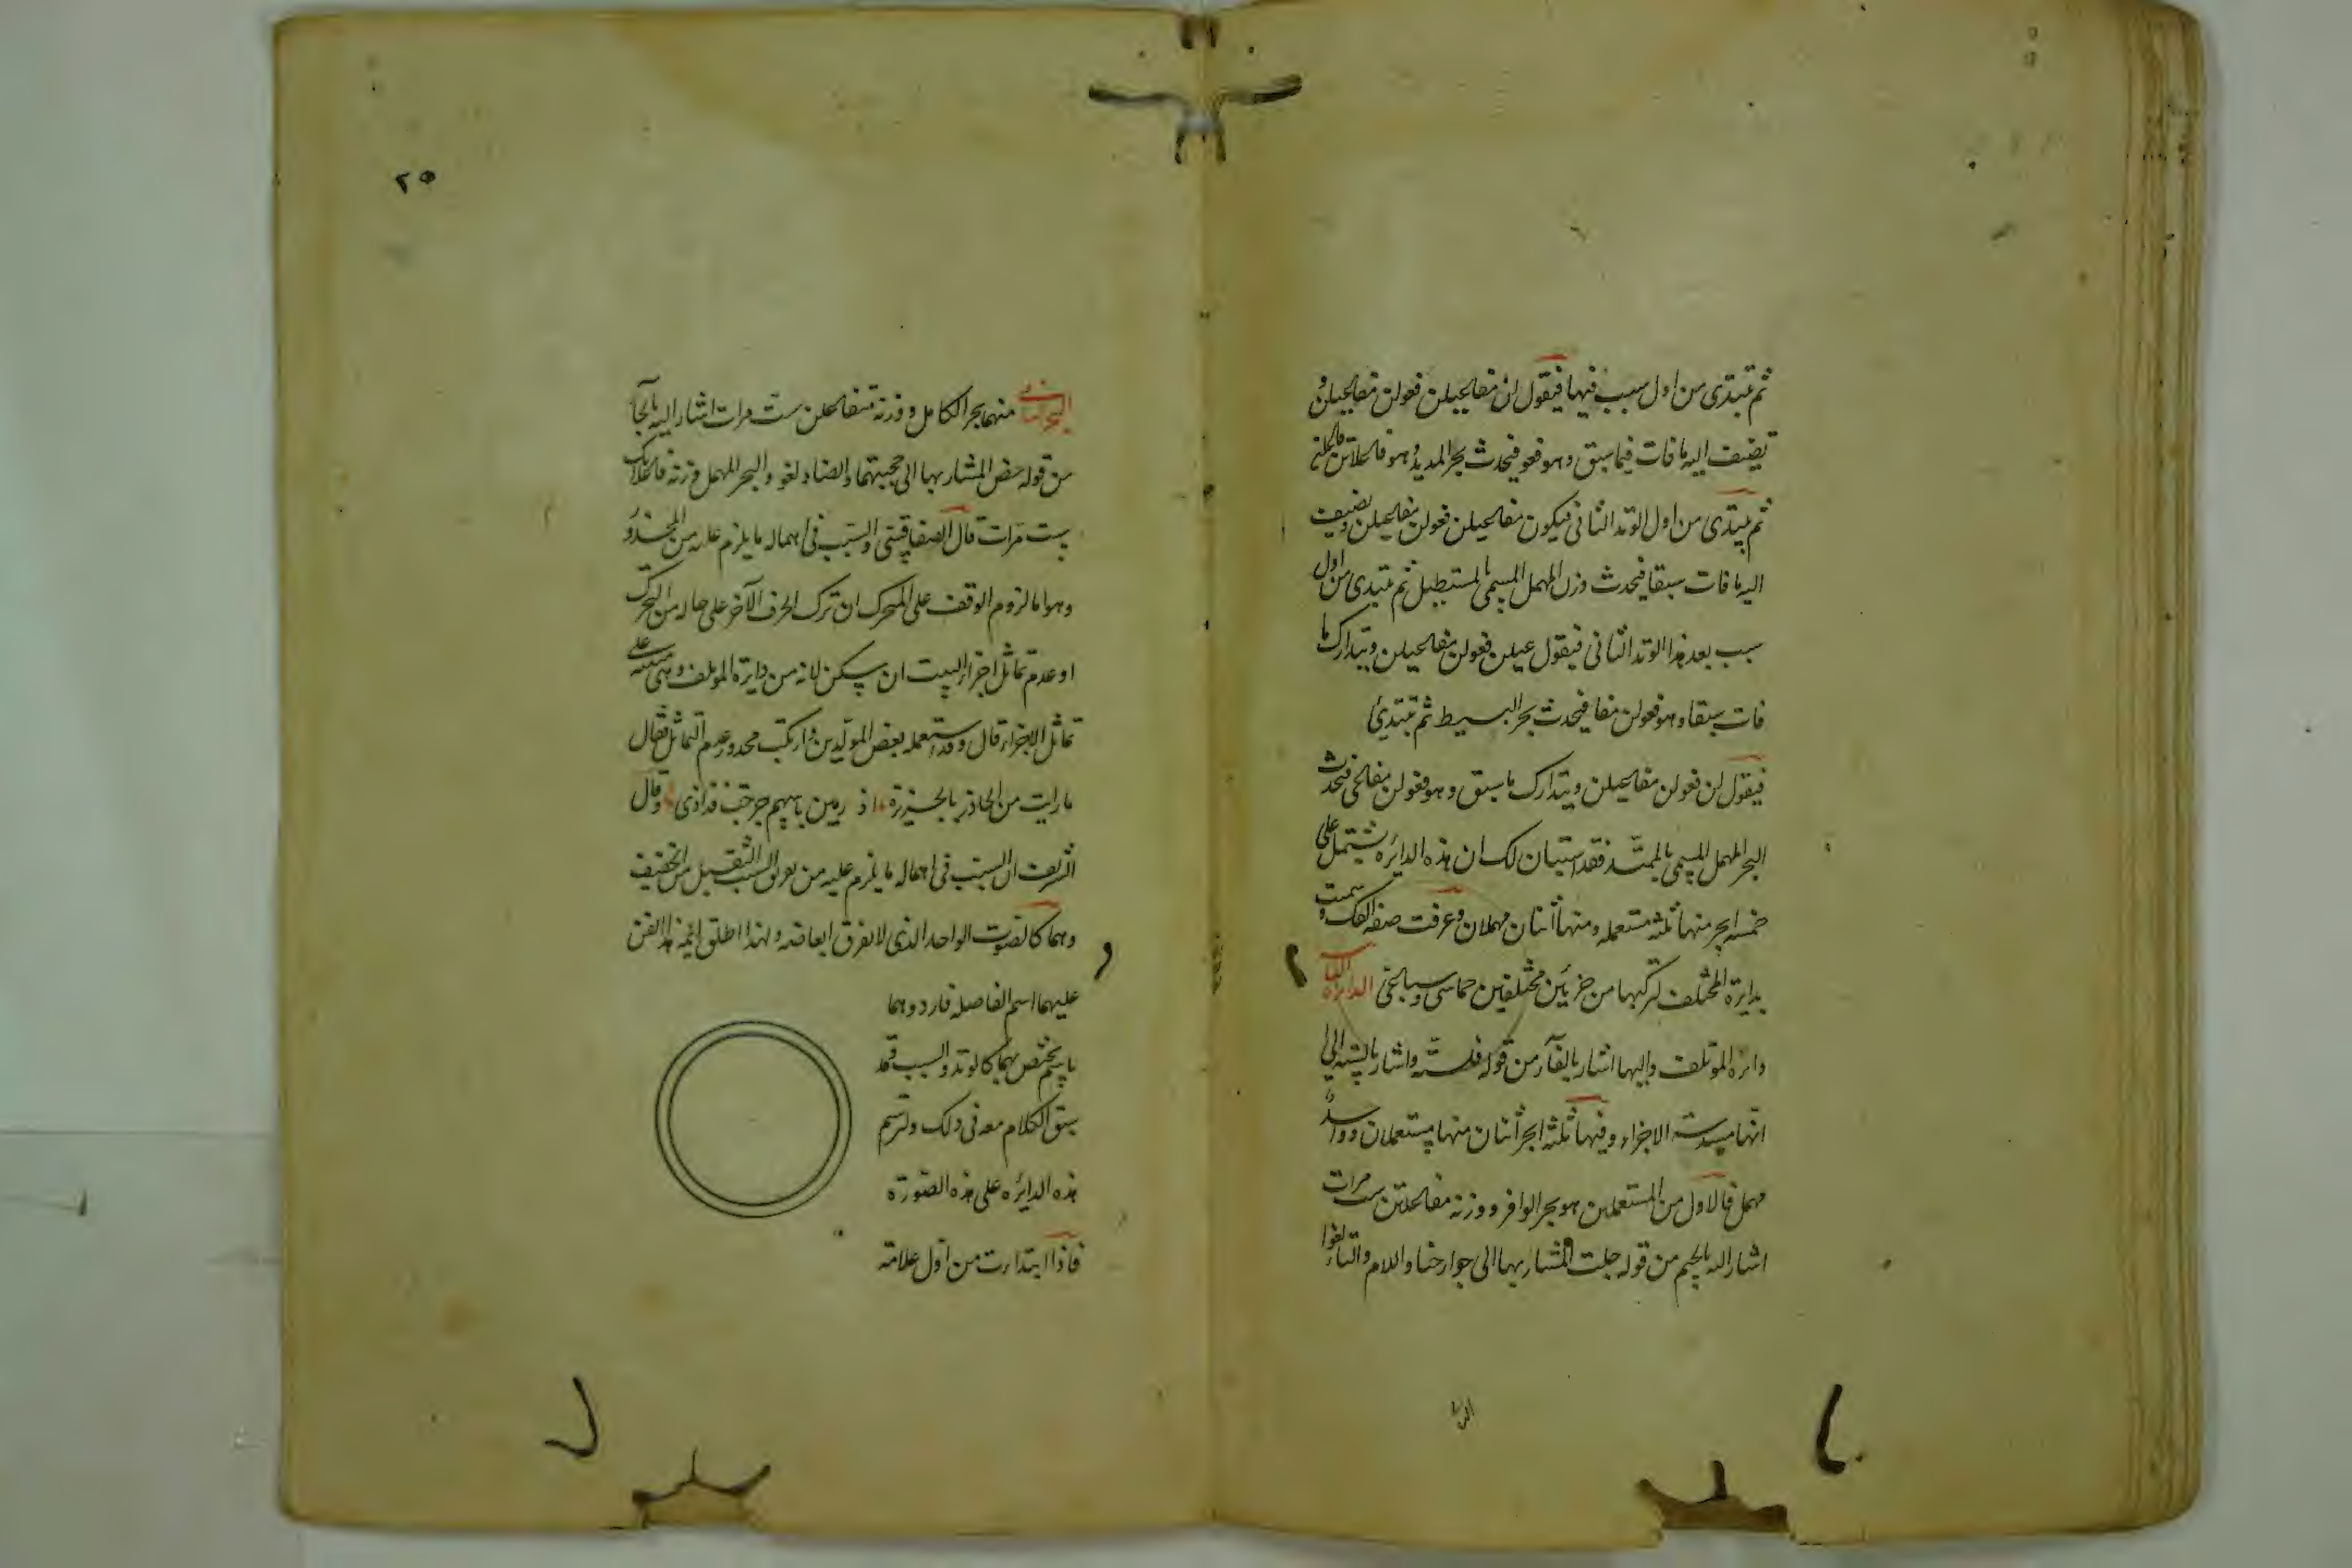 ثم تبتدى من اول سبب فيها فيقول لن مفاعيلن فعولن مفاعيلن و
تضيف اليه ما فات فيما سبق وهو فعو فيحدث بحر المديد وهو فاعلاتن فاعلن
ثم تبتدى من اول الوتد الثانى فيكون مفاعيلن فعولن مفاعيلن وتضيف
اليه ما فات سبقا فيحدث وزن المهمل المسمى بالمستطيل ثم تبتدى من اول
سبب بعد هذا الوتد الثانى فيقول عيلن فعولن مفاعيلن ويتدارك ما
فات سبقا وهو فعولن مفا فيحدث بحر البسيط ثم تبتدئ
فيقول لن فعولن مفاعيلن ويتدارك ما سبق وهو فعولن مفاعى فيحدث
البحر المهمل المسمى بالممتد فقد استبان لك ان هذه الدائره يشتمل على
خمسه ابحر منها ثلثه مستعمله ومنها اثنان مهملان وعرفت صفه الفك و سمت
بدايرة المختلف لتركبها من جزئين مختلفين خماسى وسباعى الدائرة الثانيه
دائرة الموتلف واليها اشار بالفآء من قوله فلسته واشار بالسته الى
انها مسدسة الاجزاء وفيها ثلثه ابحر اثنان منها مستعملان وواحد
مهمل فالاول من المستعملين هو بحر الوافر ووزنه مفاعلتن ست مرات
اشار اليه بالجيم من قوله جلت المشار بها الى جوارحنا واللام والتاء لغوا
الب‍حر
٢٥
البحر الثانى منهما بحر الكامل ووزنه متفاعلن ست مرات اشار اليه بالحآء
من قوله حض المشار بها الى والضاد لغو والبحر المهمل وزنه فاعلاتك
ست مرات قال الصفاقسى والسبب فى اهماله ما يلزم عليه من المحذور
وهو اما لزوم الوقف على المتحرك ان ترك الحرف الآخر على حاله من التحرك
او عدم تماثل اجزاء البيت ان سكن لانه من دايرة الموتلف وهى مبنيه على
تماثل الاجزاء قال وقد استعمله بعض المولدين وارتكب محذور عدم التماثل فقال
ما رايت من الجاذر بالجزيرة اذ رمين باسهم جرحت فوادى وقال
الشريف ان السبب فى اهماله ما يلزم عليه من تفريق السبب الثقيل من الخفيف
وهما كالصوت الواحد الذى لا يفرق ابعاضه ولهذا اطلق ائمة هذا الفن
عليهما اسم الفاصله فاردوهما
باسم يختص بهما كالوتد والسبب وقد
سبق الكلام معه فى ذلك وترسم
هذه الدائره على هذه الصورة
فاذا ابتدات من اول علامة